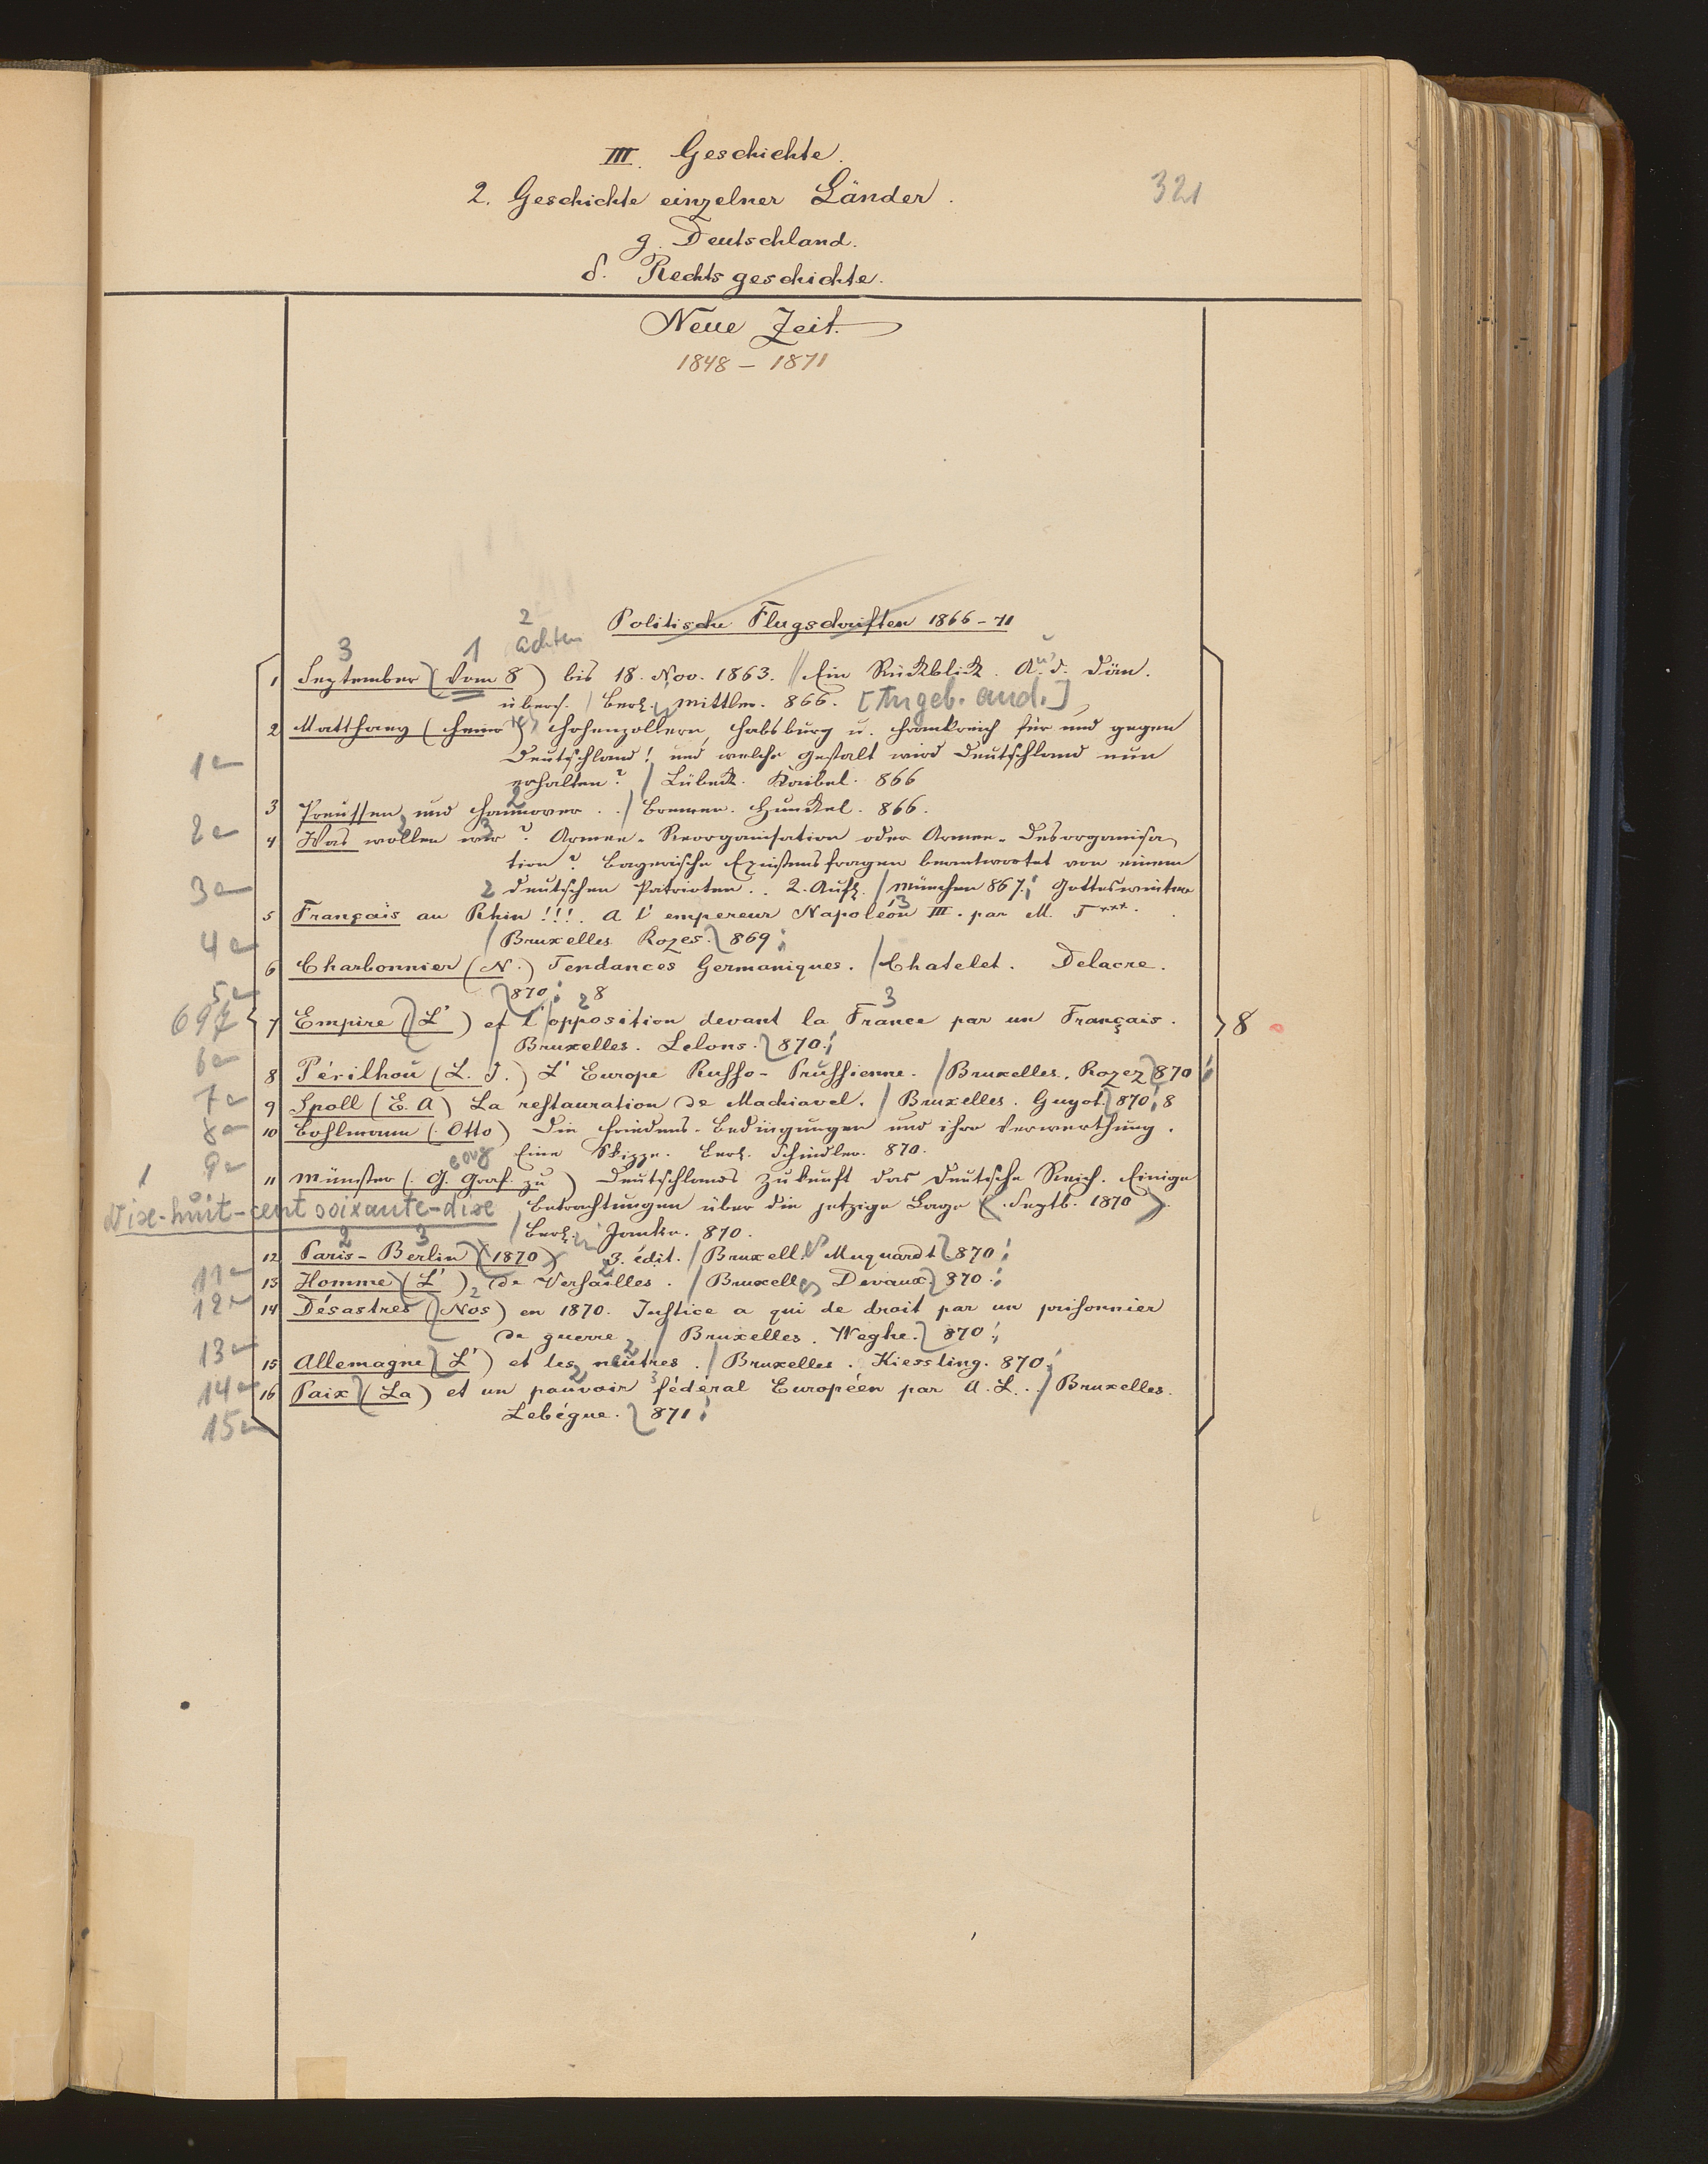 III. Geschichte.
2. Geschichte einzelner Länder.
321
g. Deutschland.
δ. Rechtsgeschichte.
Neue Zeit.
1848 – 1871
Politische Flugschriften 1866–71
3 1 2 achten
1 September (Vom 8) bis 18. Nov. 1863. Ein Rückblick. A. d. Dän.
übers. Berl. Mittler. 866. [Angeb. and.]
2 Matthaey (Heinr) Hohenzollern, Habsburg u. Frankreich für und gegen
1a Deutschland! und welche Gestalt wird Deutschland nun
erhalten? Lübeck. Kaibel. 866
3 Preussen und Hannover. Bremen. Hunckel. 866.
2a
4 Was wollen wir? Armee-Reorganisation oder Armee-Desorganisa
tion? Bayerische Existensfragen beantwortet von einem
3a deutschen Patrioten.. 2. Aufl. München 867. Gotteswinter
5 Français au Rhin!!!. A l'empereur Napoléon III. par M. T***.
4a Bruxelles Rozes. 869
6 Charbonnier (N.) Tendances Germaniques. Chatelet. Delacre.
5a 870. 8
7 Empire (L') et l'opposition devant la France par un Français.
8
Bruxelles. Lelons. 870.
6a
8 Périlhou (L. J.) L'Europe Russo-Prussienne. Bruxelles. Rozez 870
7a
9 Spoll (E. A) La restauration de Machiavel. Bruxelles. Guyot. 870. 8
8a
10 Bohlmann (Otto) Die Friedens-Bedingungen und ihre Verwerthung.
9a Eine Skizze. Berl. Schindler. 870.
11 Münster (G. Graf. zu) Deutschlands Zukunft das Deutsche Reich. Einige
eorg
1 Dix-huit-cent soixante-dix Betrachtungen über die jetzige Lage (Septb. 1870).
Berl. Janke. 870.
2 3
12 Paris-Berlin (1870) 3. édit. Bruxell. Muquardt 870.
11a
13 Homme (L') de Versailles. Bruxelles Devaux 870.
12a
14 Désastres (Nos) en 1870. Justice a qui de droit par un prisonnier
de guerre Bruxelles. Weghe. 870.
13a
15 Allemagne (L') et les neutres. Bruxelles. Kiessling. 870.
14a
16 Paix (La) et un pouvoir fédéral Européen par A. L... Bruxelles.
15a Lebégue. 871.